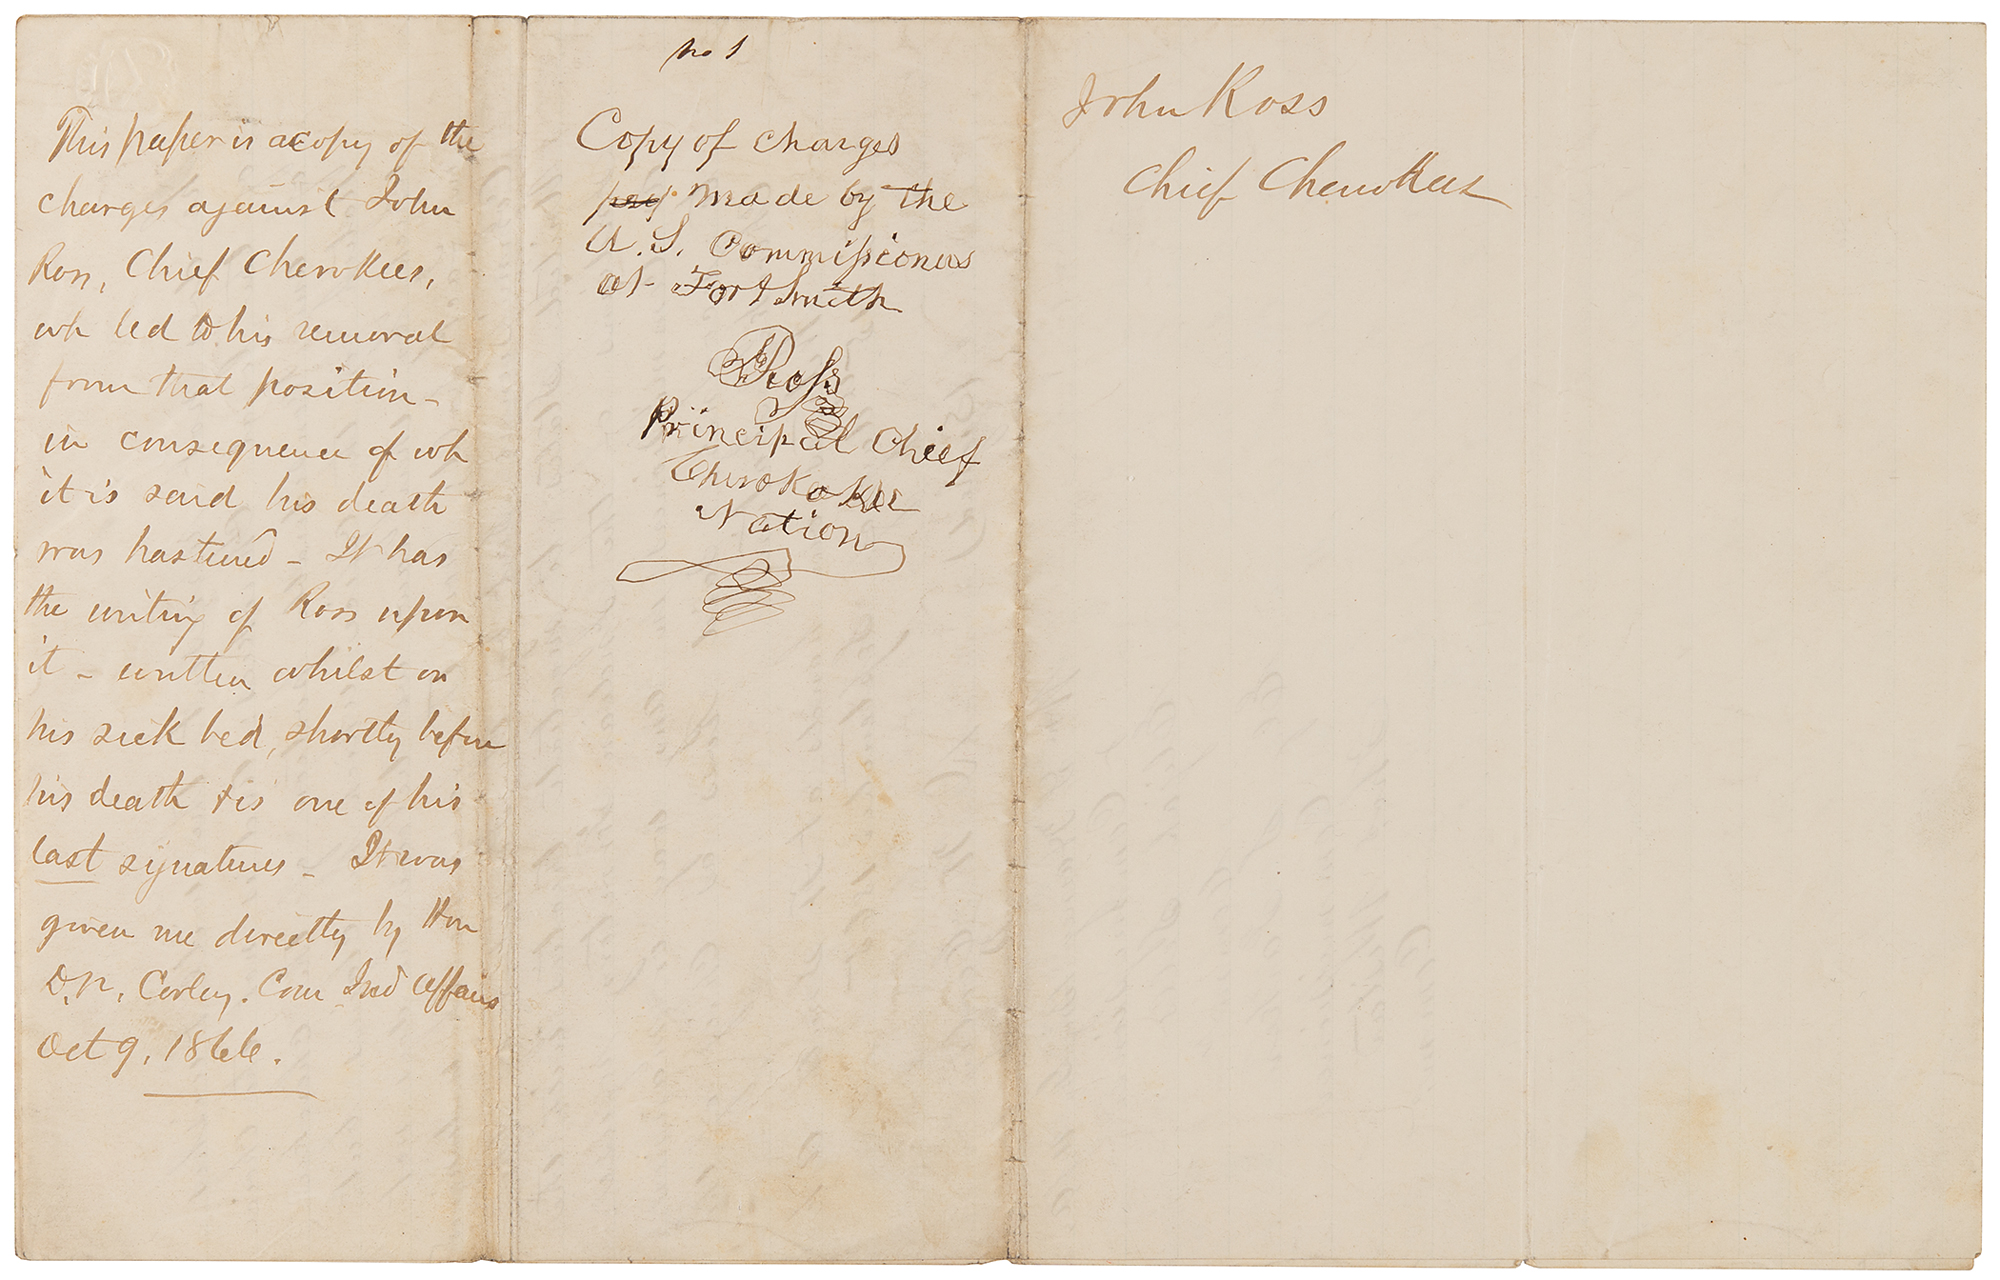 This paper is a copy of the
charges against John
Ross, Chief Cherokees,
wh led to his removal
from that position –
in consequence of wh
it is said his death
was hastened – It has
the writing of Ross upon
it – written whilst on
his sick bed, shortly before
his death & is one of his
last signatures – It was
given me directly by Hon
D. N. Cooley. Com Ind Affairs
Oct 9, 1866.
No 1
Copy of charges
made by the
U.S. Commissioners
at Fort Smith
Ross
Principal Chief
Cherokokee
Nation
John Ross
Chief Cherokees